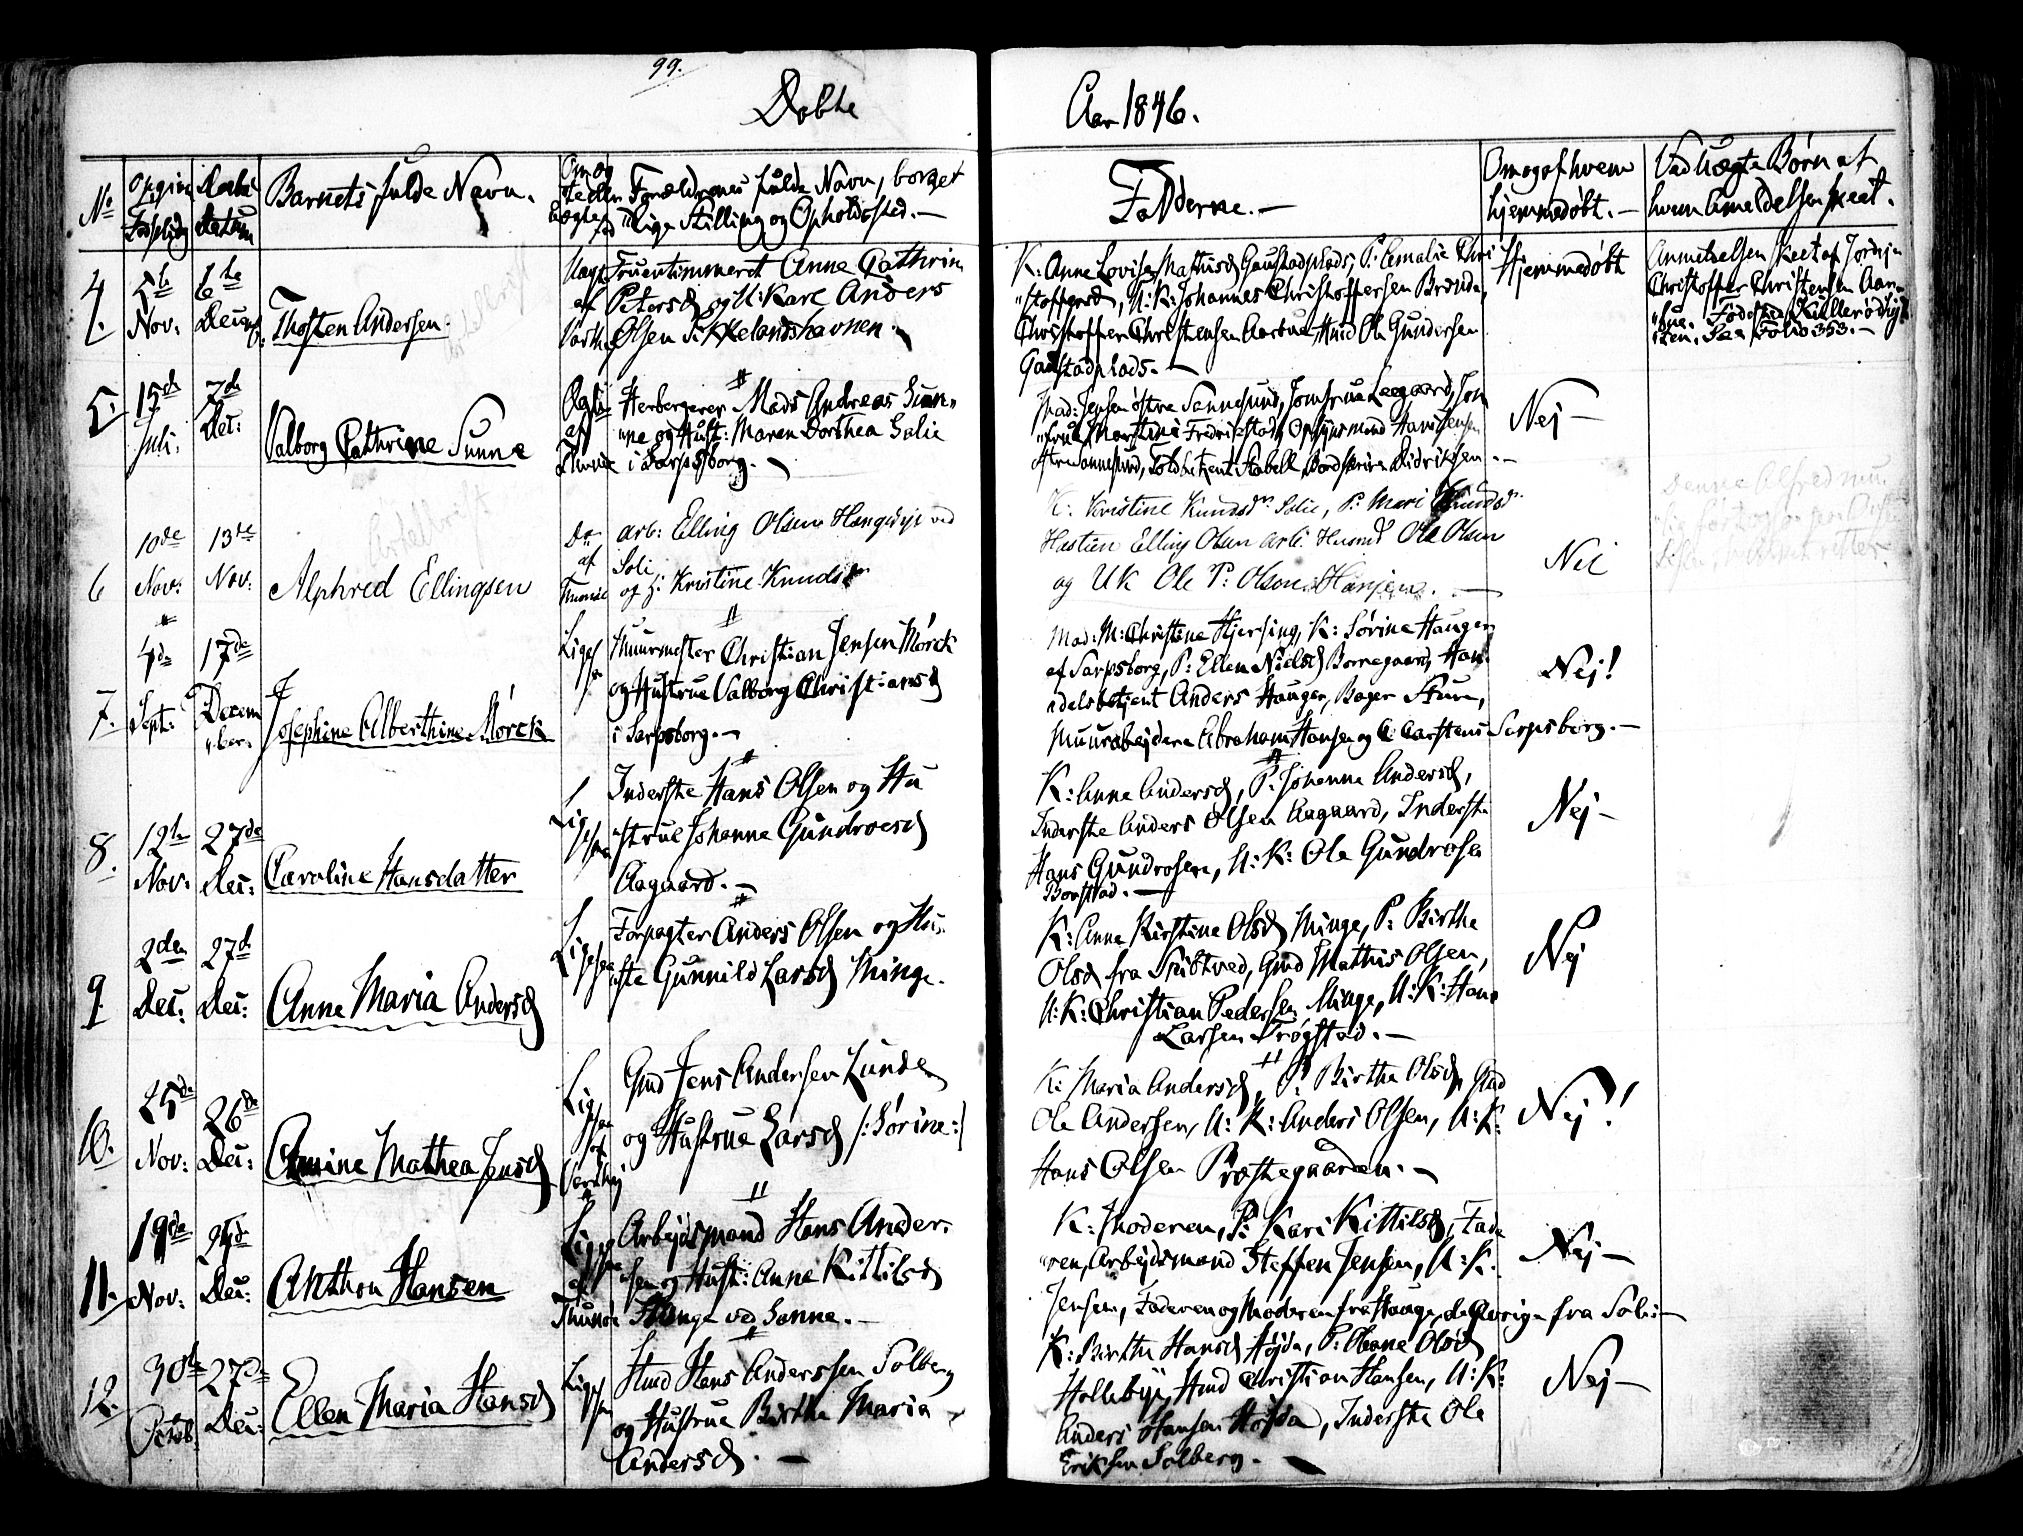 99.
Døbte
Aar 1846.
No
Barnets fulde Navn.
Forældrenes fulde Navn, borger
lige Stilling og Opholdssted.—
Fadderne.—
Om og af hvem
hjemmedøbt.—
Ved Uægte Børn af
hvem Anmeldelsen skeet.
4.
5te
Nov:
6te
Thosten Andersen.
Uægte
af
Fruentimmeret Anne Cathrin
Petersd og U: Karl Anders
Olsen Sikkelandshavnen.
K: Anne Lovise Mathisd Gaustadplads, P: Amalie Chri
stoffersd, U: K: Johannes Christoffersen
Christoffer Christensen Aarbue, Husmd Ole Gundersen
Gaustadplads.—
Hjemmedøbt
Anmeldelsen skeet af
Christoffer Christensen Aar
bue.
See Folio 353.—
5.
15de
Juli:
7de
Dec:
Valborg Cathrine Sunne
Ægte
af
Thune
Herbergerer Mads Andreas Sun
ne og Hust: Maren Dorthea Solie
i Sarpsborg.
Mad: Jensen østre Sannesund, Jomfrue Leegaard, Jom
frue Martine Fredrikstad, Opsynsmand Hans Jensen
østre Sannesund, Toldbetjent Stabell, Didriksen.—
Nej—
6
10de
Nov:
13de
Nov:
Alphred Ellingsen
Do
af
Thune
arb: Elling Olsen Hængslye ved
Soli
og H: Kristine Knudsdr
K: Kristine Knudsdr Solie, P: Mari Knudsdr
Hastien Elling Olsen arb: Husmd Ole Olsen
og UK Ole P: Olsen Hansen.—
Nei
Denne Alfred
7.
4de
Sept:
17de
Decem
ber.
Josephine Alberthine Mørck
Ligesaa
Muurmester Christian Jensen Mørck
og Hustrue Valborg Christiansd
i Sarpsborg.—
Mad: M: Christine Hjersing, K: Sørine Haugen
af Sarpsborg, P: Ellen Nielsd Borregaard, Han
delsbetjent Anders Haugen, Bager Sturen,
Muurarbejderne Abraham Hansen og C Carstens Sarpsborg.—
Nej!
8.
12te
Nov:
27de
Dec:
Caroline Hansdatter
Ligesaa
Inderste Hans Olsen og Hu
strue Johanne Gundrosesd
Aagaard.—
K: Anne Andersd, P: Johanne Andersd,
Inderste Anders Olsen Aagaard, Inderste
Hans Gundrosen, U: K: Ole Gundrosen
Borstad.—
Nej—
9
2den
Dec:
27de
Dec:
Anne Maria Andersd
Ligesaa
Forpagter Anders Olsen og Hu
ste Gunnild Larsd Minge.
K: Anne Kirstine Olsd Minge, P: Birthe
Olsd fra Snibtved, Gmd Mathis Olsen,
U: K: Christian Pedersen Minge, U: K: Hans
Larsen Trøgstad.—
Nej
10.
25de
Nov:
26de
Dec:
Amine Mathea Jensd
Ligesaa
Gmd Jens Andersen Lunde
og Hustrue Larsd /:Sørine:/
K: Maria Andersd, P: Birthe Olsd, Gmd
Ole Andersen, U: K: Anders Olsen, U: K:
Hans Olsen Præstegaarden.—
Nej!
11.
19de
Nov:
Dec:
Anthon Hansen
Ligesaa
af
Thune
Arbejdsmand Hans Ander
sen og Hust: Anne Kittilsd
Hauge ved Sanne.—
K: Moderen, P: Kari Kittilsd, Fade
ren, Arbejdsmand Steffen Jensen, U: K.
Jensen, Faderen og Moderen fra Hauge, de øvrige fra Soli—
Nej—
12.
30te
Octob
27de
Dec:
Ellen Maria Hansd
Ligesaa
Hmd Hans Anderssen Solberg
og Hustrue Birthe Maria
Andersd.—
K: Birthe Hansd Højda, P: Oleane Olsd
Hollebye, Hmd Christian Hansen, U: K:
Anders Hansen Højda, Inderste Ole
Eriksen Solberg.—
Nej—